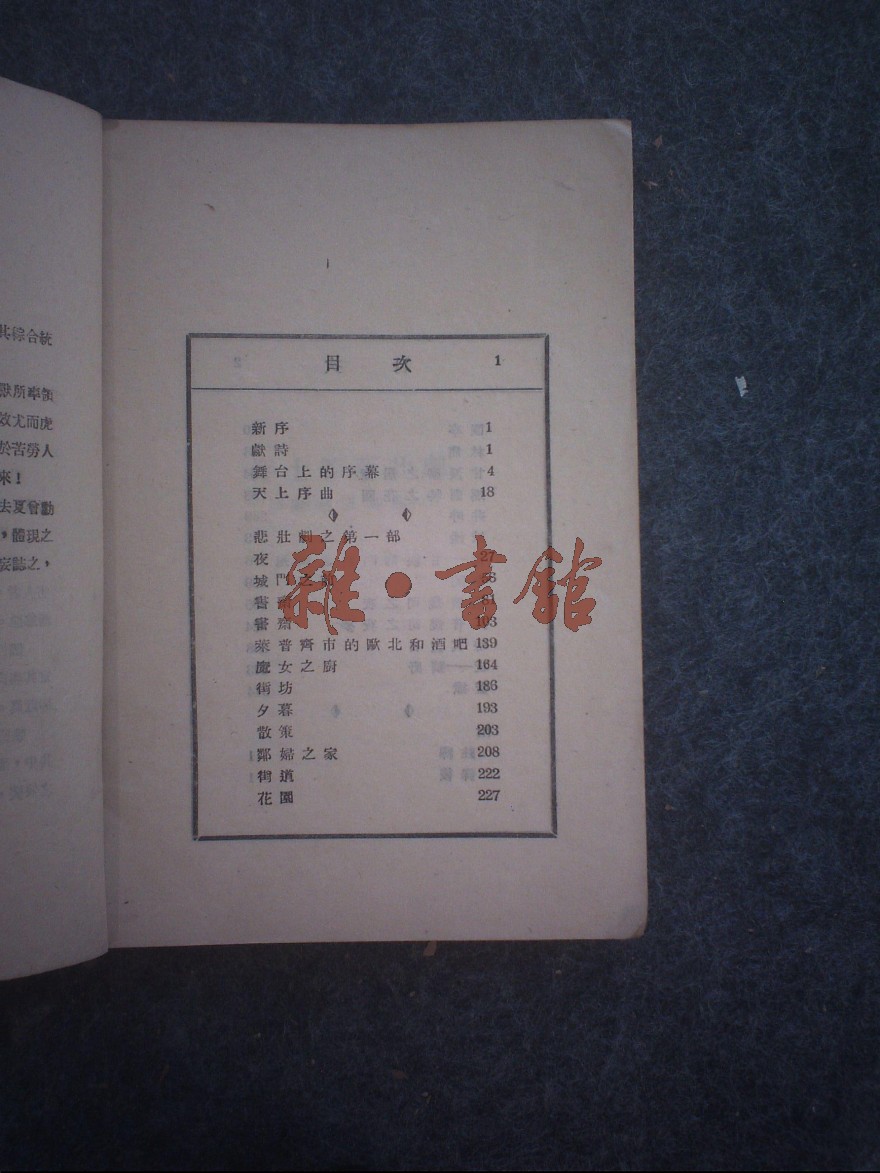 其綜合統
獸所率領
效尤而虎
於苦勞人
來！
去夏曾動
，體現之
妄誌之，
目次 1
新序 1
獻詩 1
舞台上的序幕 4
天上序曲 18
悲壯劇之第一部
夜 27
城門
書齋
書齋 103
萊普齊市的歐北和酒吧 139
魔女之廚 164
街坊 186
夕暮 193
散策 203
鄰婦之家 208
街道 222
花園 227
雜·書館